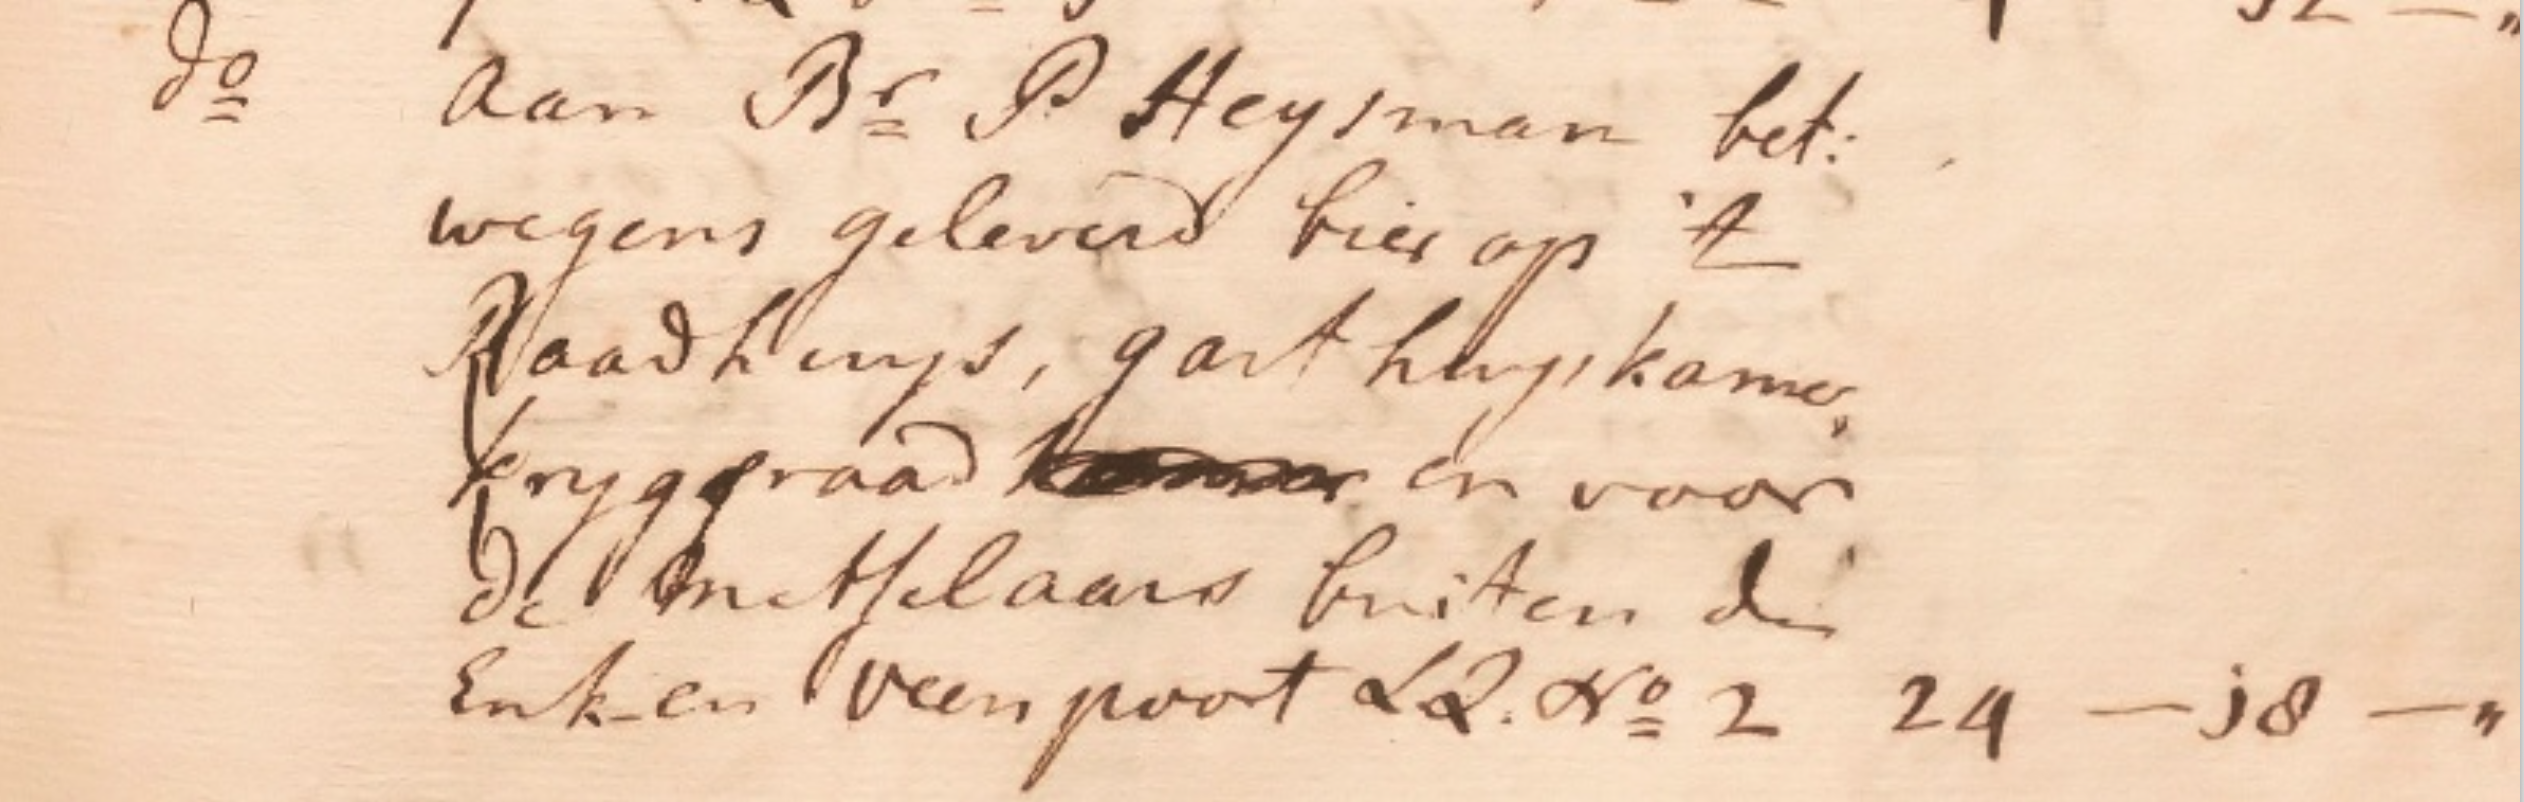 do Aan Br P Heysman bet:
wegens geleverd bier op 't
Raadhuys, gasthuys kamer,
krygsraad en voor
de metselaars buiten de
Enk-en Veenpoort LQ. No 2 24 — j8 — "